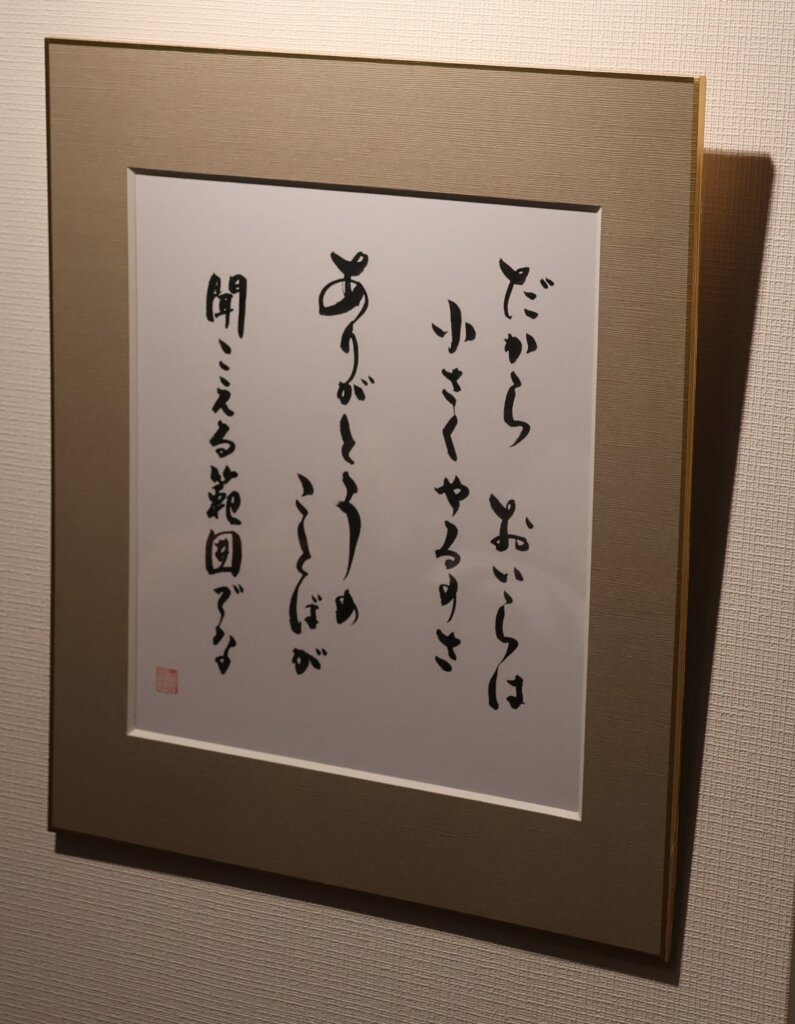 だから おいらは
小さくやるのさ
ありがとうの
ことばが
聞こえる範囲でな